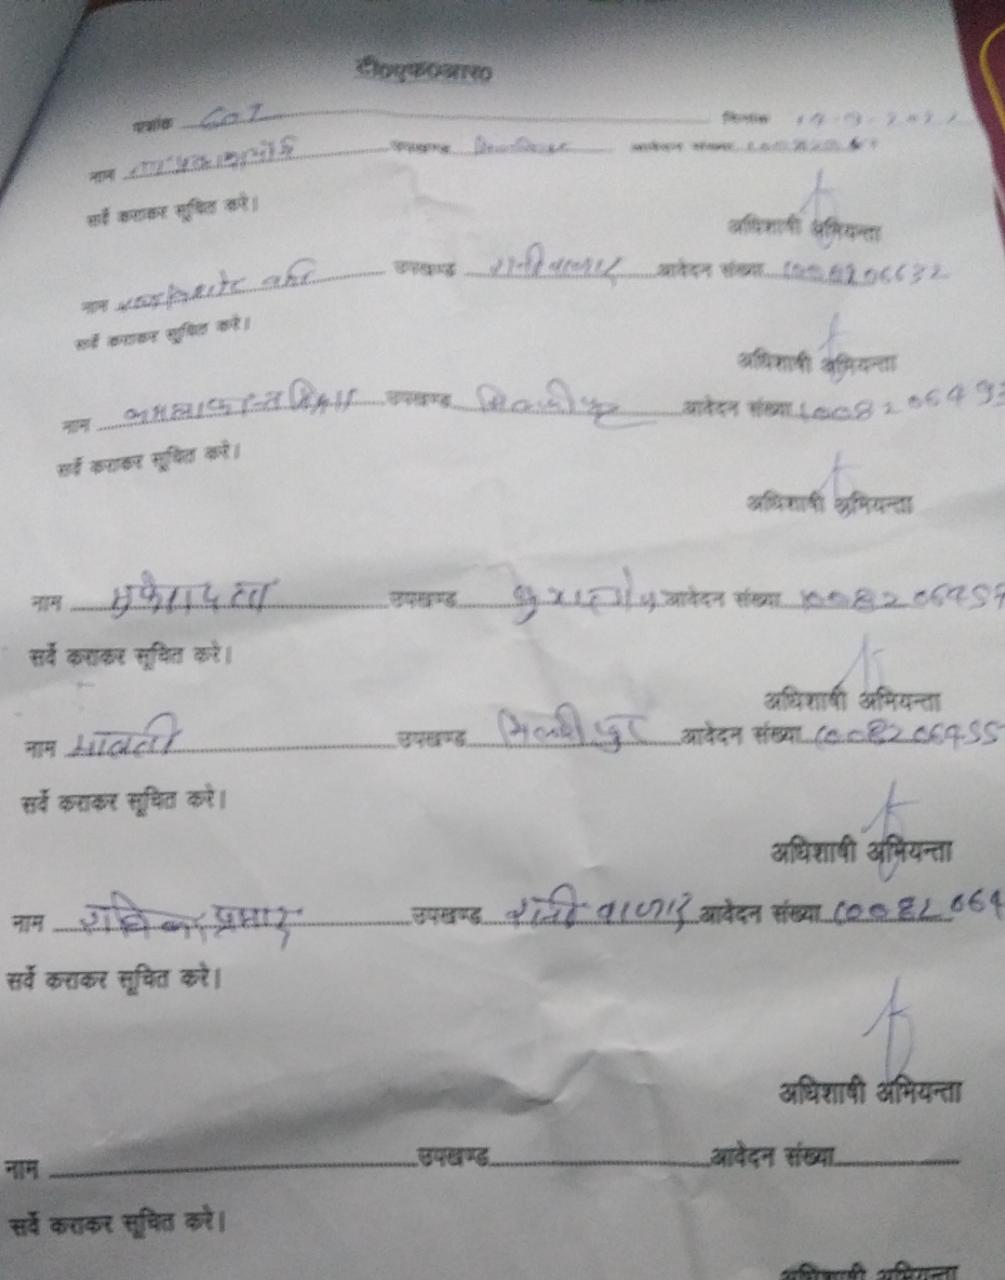 टी०एफ०आर०
पत्रांक 607 दिनांक
नाम उपखण्ड आवेदन संख्या
सर्वे कराकर सूचित करे।
अधिशाषी अभियन्ता
नाम उपखण्ड रानीबाजार आवेदन संख्या 1008206632
सर्वे कराकर सूचित करे।
अधिशाषी अभियन्ता
नाम कमलाकान्त मिश्रा उपखण्ड मिल्कीपुर आवेदन संख्या 100820649
सर्वे कराकर सूचित करे।
अधिशाषी अभियन्ता
नाम उपखण्ड आवेदन संख्या 1008206457
सर्वे कराकर सूचित करे।
अधिशाषी अभियन्ता
नाम मालती उपखण्ड मिल्कीपुर आवेदन संख्या 1008206455
सर्वे कराकर सूचित करे।
अधिशाषी अभियन्ता
नाम राधिका प्रसाद उपखण्ड रानी बाजार आवेदन संख्या 10082064
सर्वे कराकर सूचित करे।
अधिशाषी अभियन्ता
नाम उपखण्ड आवेदन संख्या
सर्वे कराकर सूचित करे।
अधिशाषी अभियन्ता